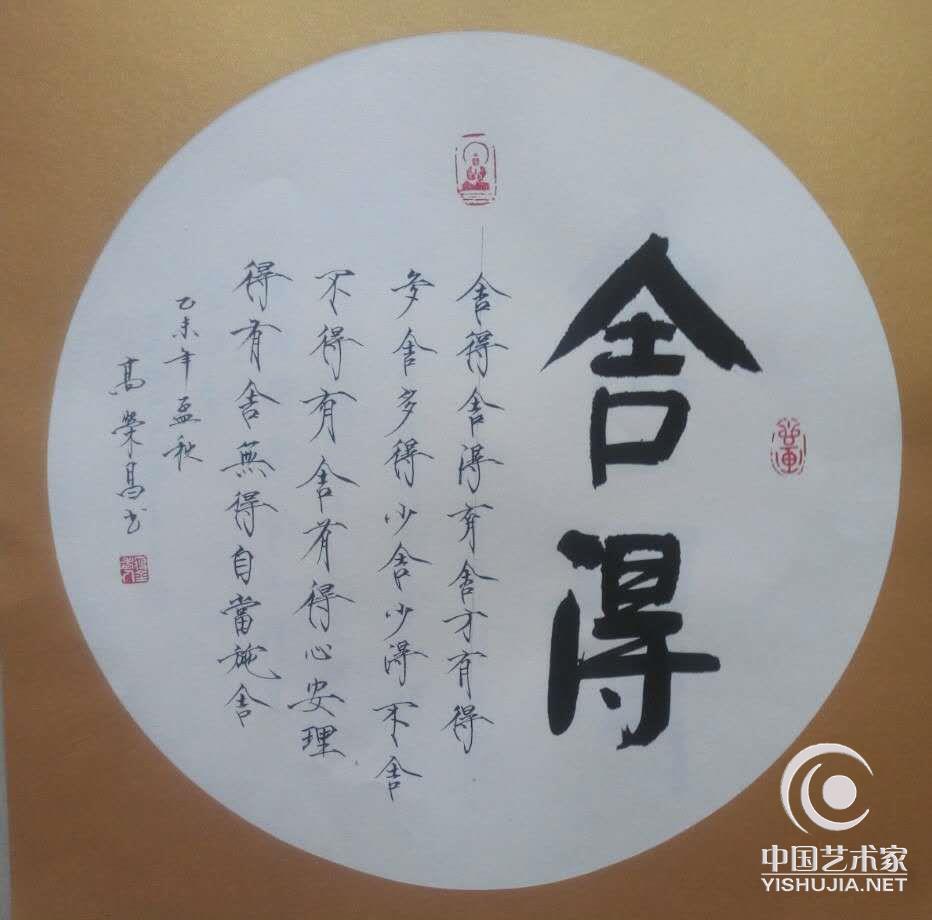 舍得
舍得舍得有舍才有得
多舍多得少舍少得不舍
不得有舍有得心安理
得有舍無得自當施舍
乙未年孟秋
高榮昌书
中国艺术家
YISHUJIA.NET